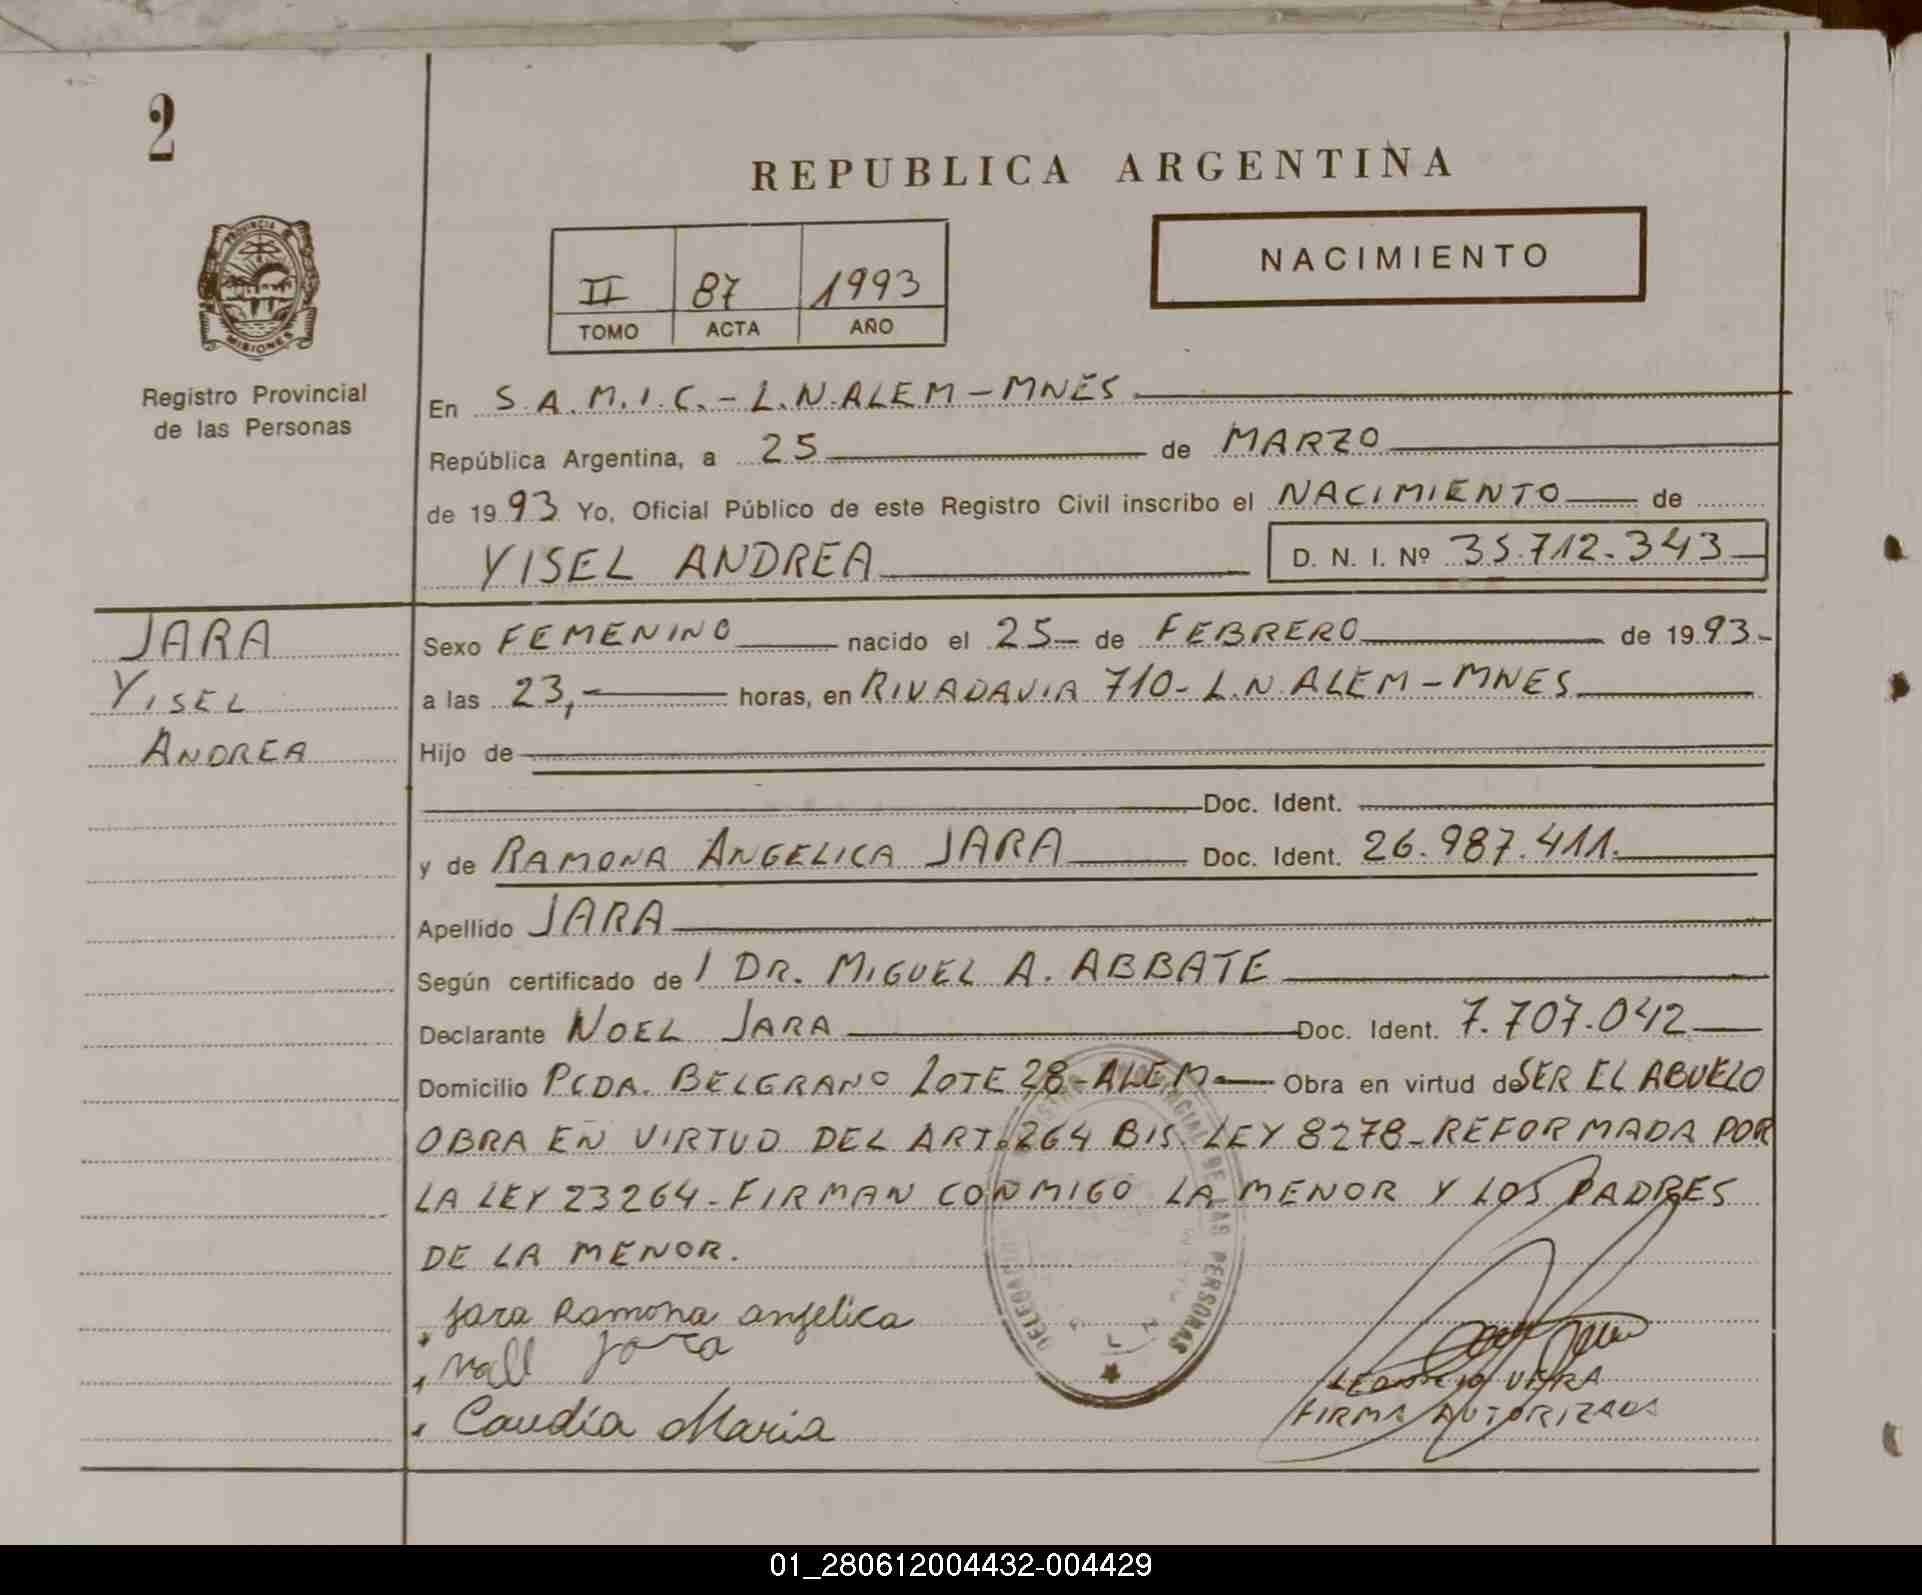 2
REPUBLICA ARGENTINA
PROVINCIA DE
MISIONES
II 87 1993
TOMO ACTA AÑO
NACIMIENTO
Registro Provincial
de las Personas
En S.A.M.I.C.-L.N.ALEM-MNES
República Argentina, a 25 de MARZO
de 1993 Yo, Oficial Público de este Registro Civil inscribo el NACIMIENTO de
YISEL ANDREA D. N. I. Nº 35.712.343
JARA
YISEL
ANDREA
Sexo FEMENINO nacido el 25 de FEBRERO de 1993-
a las 23,- horas, en RIVADAVIA 710-L.N.ALEM-MNES
Hijo de
Doc. Ident.
y de RAMONA ANGELICA JARA Doc. Ident. 26.987.411.
Apellido JARA
Según certificado de l DR. MIGUEL A. ABBATE
Declarante NOEL JARA Doc. Ident. 7.707.042
Domicilio PCDA. BELGRANO LOTE 28-ALEM- Obra en virtud de SER EL ABUELO
OBRA EN VIRTUD DEL ART. 264 BIS. LEY 8278-REFORMADA POR
LA LEY 23264-FIRMAN CONMIGO LA MENOR Y LOS PADRES
DE LA MENOR.
Jara Ramona angelica
Jara
Caudia Maria
DE LAS PERSONAS
VERA
FIRMA AUTORIZADA
01_280612004432-004429